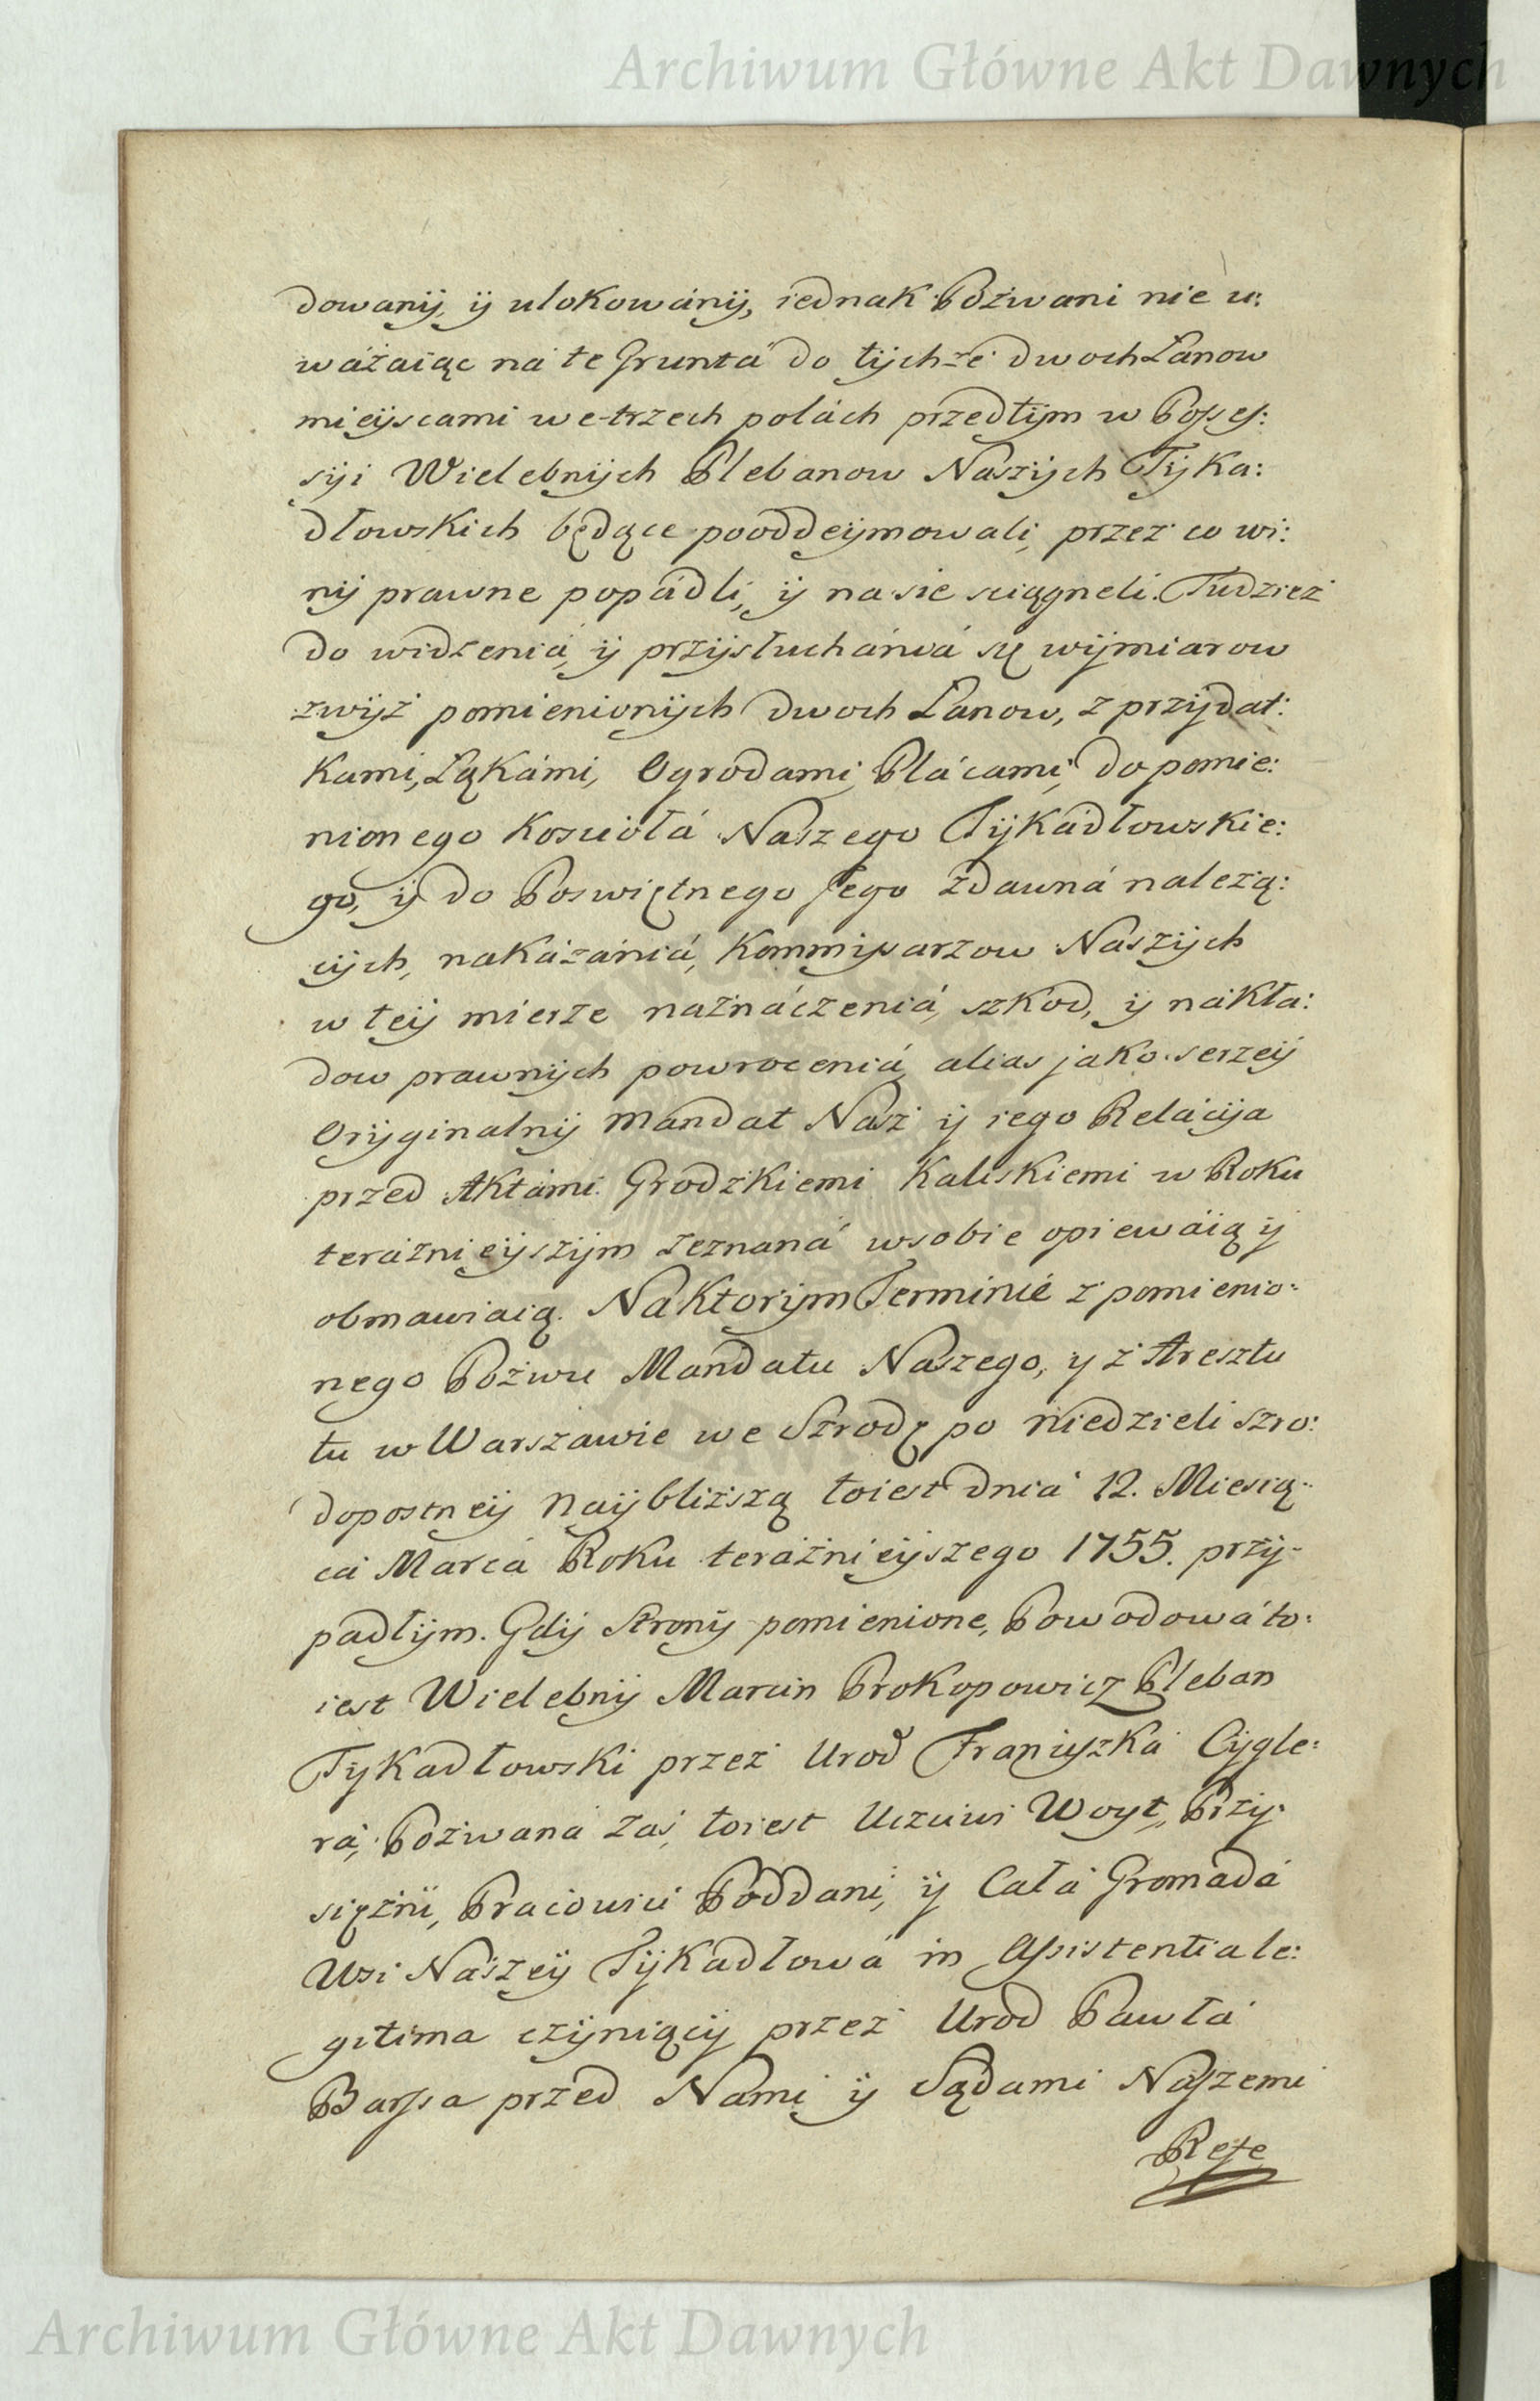 Archiwum Główne Akt Dawnych
dowanÿ, ÿ ulokowánÿ, iednak Pozwani nie u:
wáżaiąc ná te Gruntá do tÿchże dwoch Łanow
mieÿscami we trzech polách przedtÿm w Posses:
sÿi Wielebnÿch Plebanow Naszÿch Tÿka:
dłowskich będące pooddeÿmowali, przez co wi:
nÿ prawne popádli, ÿ na sie sciągneli. Tudzież
do widzeniá, ÿ przÿsłuchániá się wÿmiarow
zwÿż pomienionÿch dwoch Łanow, z przÿdat:
kami, Łąkámi, Ogrodami, Plácami, do pomie:
nionego Kosciołá Naszego Tÿkadłowskie:
go, ÿ do Poswiętnego Jego zdawná nalezą:
cÿch, nakázániá, Kommissarzow Naszÿch
w teÿ mierze náznáczeniá, szkod, ÿ nákła:
dow prawnÿch powroceniá, alias jako szerzeÿ
Orÿginalnÿ Mandat Nasz ÿ iego Relácÿa
przed Aktámi Grodzkiemi Kaliskiemi w Roku
teráznieÿszÿm zeznaná w sobie opiewáią ÿ
obmawiaią. Na ktorÿm Terminie z pomienio:
nego Pozwu Mandatu Naszego, y z Aresztu
tu w Warszawie we Szrodę po Niedzieli szro:
dopostneÿ naÿbliższą toiest dniá 12. Miesią:
cá Marcá Roku teráznieÿszego 1755. przÿ-
padłÿm. Gdÿ Stronÿ pomienione, Powodowá to:
iest Wielebnÿ Marcin Prokopowicz Pleban
Tykadłowski przez Urod Franciszká Cÿgle:
rá, Pozwaná zaś, toiest Uczciwi Woyt, Przÿ:
sięzni, Pracowici Poddani, ÿ Cała Gromadá
Wsi Nászeÿ Tÿkadłowá in Assistentia le:
gitima czÿniącÿ przez Urod Pawłá
Barssa przed Nami ÿ Sądami Naszemi
Rese
Archiwum Główne Akt Dawnych